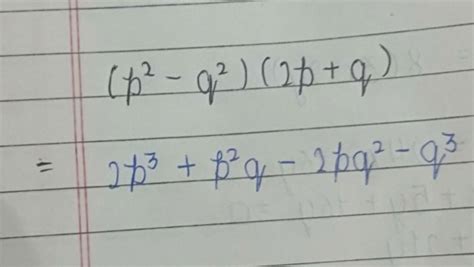 (p² - q²) (2p + q)
= 2p³ + p²q - 2pq² - q³